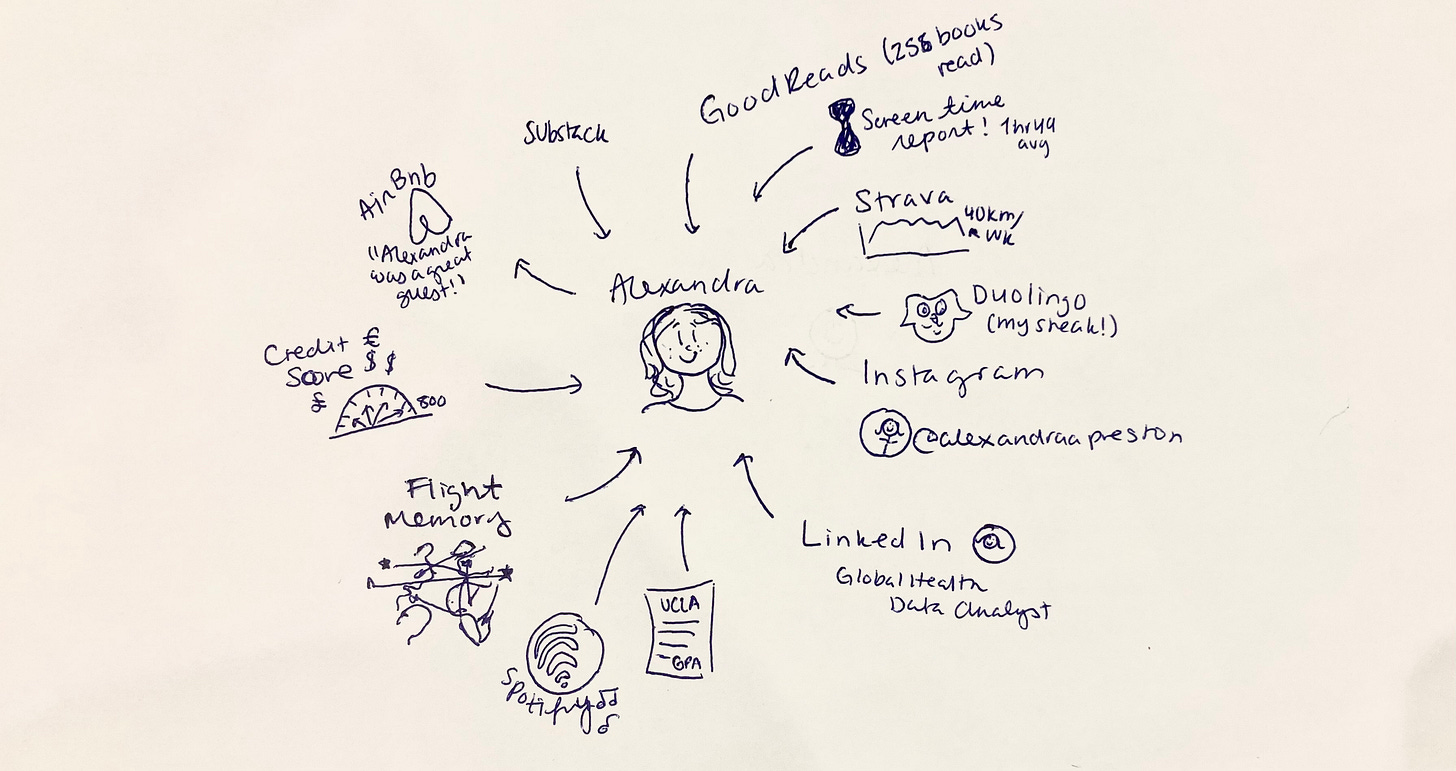 GoodReads (258 books
read)
Substack
Screen time
report! 1hr49
avg
AirBnb
"Alexandra
was a great
guest!"
Strava
40km/
wk
Alexandra
Duolingo
(my streak!)
Credit €
Score $ $
£
800
Instagram
@alexandraapreston
Flight
Memory
LinkedIn
Global Health
Data Analyst
UCLA
GPA
Spotify